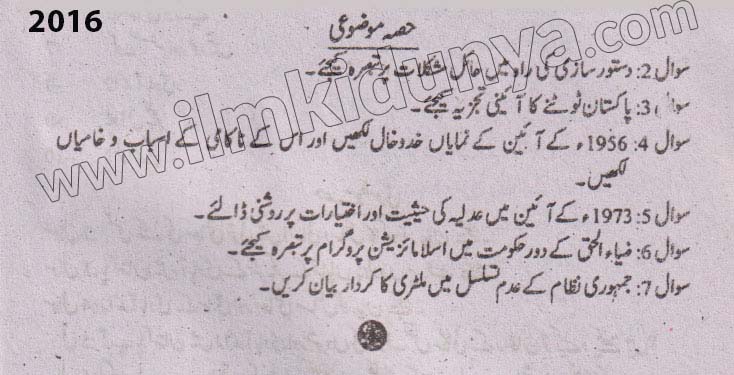 2016
حصہ موضوعی
سوال 2: دستور سازی کی راہ میں حائل مشکلات پر تبصرہ کیجئے۔
سوال 3: پاکستان ٹوٹنے کا آئینی تجزیہ کیجئے۔
سوال 4: 1956ء کے آئین کے نمایاں خدوخال لکھیں اور اس کے ناکامی کے اسباب و خامیاں
لکھیں۔
سوال 5: 1973ء کے آئین میں عدلیہ کی حیثیت اور اختیارات پر روشنی ڈالئے۔
سوال 6: ضیاء الحق کے دور حکومت میں اسلامائزیشن پروگرام پر تبصرہ کیجئے۔
سوال 7: جمہوری نظام کے عدم تسلسل میں ملٹری کا کردار بیان کریں۔
www.ilmkidunya.com